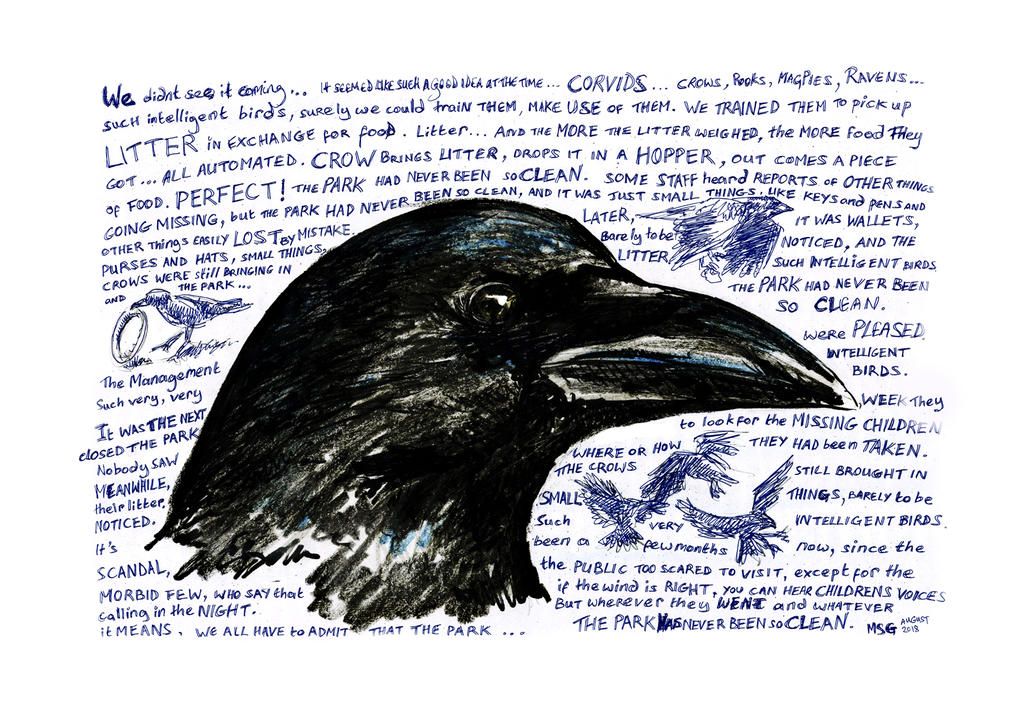 We didnt see it coming... IT SEEMED LIKE SUCH A GOOD IDEA AT THE TIME... CORVIDS... CROWS, Rooks, MAGPIES, RAVENS...
such intelligent birds, surely we could train THEM, MAKE USE OF THEM. WE TRAINED THEM TO pick up
LITTER in EXCHANGE FOR food. Litter... AND THE MORE THE LITTER WEIGHED, the MORE Food They
GOT... ALL AUTOMATED. CROW BRINGS LITTER, DROPS IT IN A HOPPER, OUT COMES A PIECE
of FOOD. PERFECT! THE PARK HAD NEVER BEEN so CLEAN. SOME STAFF heard REPORTS of OTHER THINGS
GOING MISSING, but THE PARK HAD NEVER BEEN SO CLEAN, AND IT WAS JUST SMALL THINGS, LIKE KEYS and PENS AND
OTHER Things EASILY LOST BY MISTAKE. LATER, IT WAS WALLETS,
PURSES AND HATS, SMALL THINGS, Barely to be NOTICED, AND THE
CROWS WERE still BRINGING IN LITTER, SUCH INTELLIGENT BIRDS.
and THE PARK... THE PARK HAD NEVER BEEN
SO CLEAN.
The Management were PLEASED.
Such very, very INTELLIGENT
BIRDS.
It WAS THE NEXT WEEK They
closed THE PARK to look for the MISSING CHILDREN
Nobody SAW WHERE OR HOW THEY HAD been TAKEN.
MEANWHILE, THE CROWS STILL BROUGHT IN
their litter, SMALL THINGS, BARELY to be
NOTICED. Such VERY INTELLIGENT BIRDS.
It's been a few months now, since the
SCANDAL, the PUBLIC TOO SCARED TO VISIT, except for the
MORBID FEW, WHO SAY that if the wind is RIGHT, you CAN HEAR CHILDRENS VOICES
calling in the NIGHT. But wherever they WENT and WHATEVER
it MEANS, WE ALL HAVE to ADMIT THAT THE PARK ... THE PARK HAS NEVER BEEN so CLEAN.
MSG AUGUST 2018